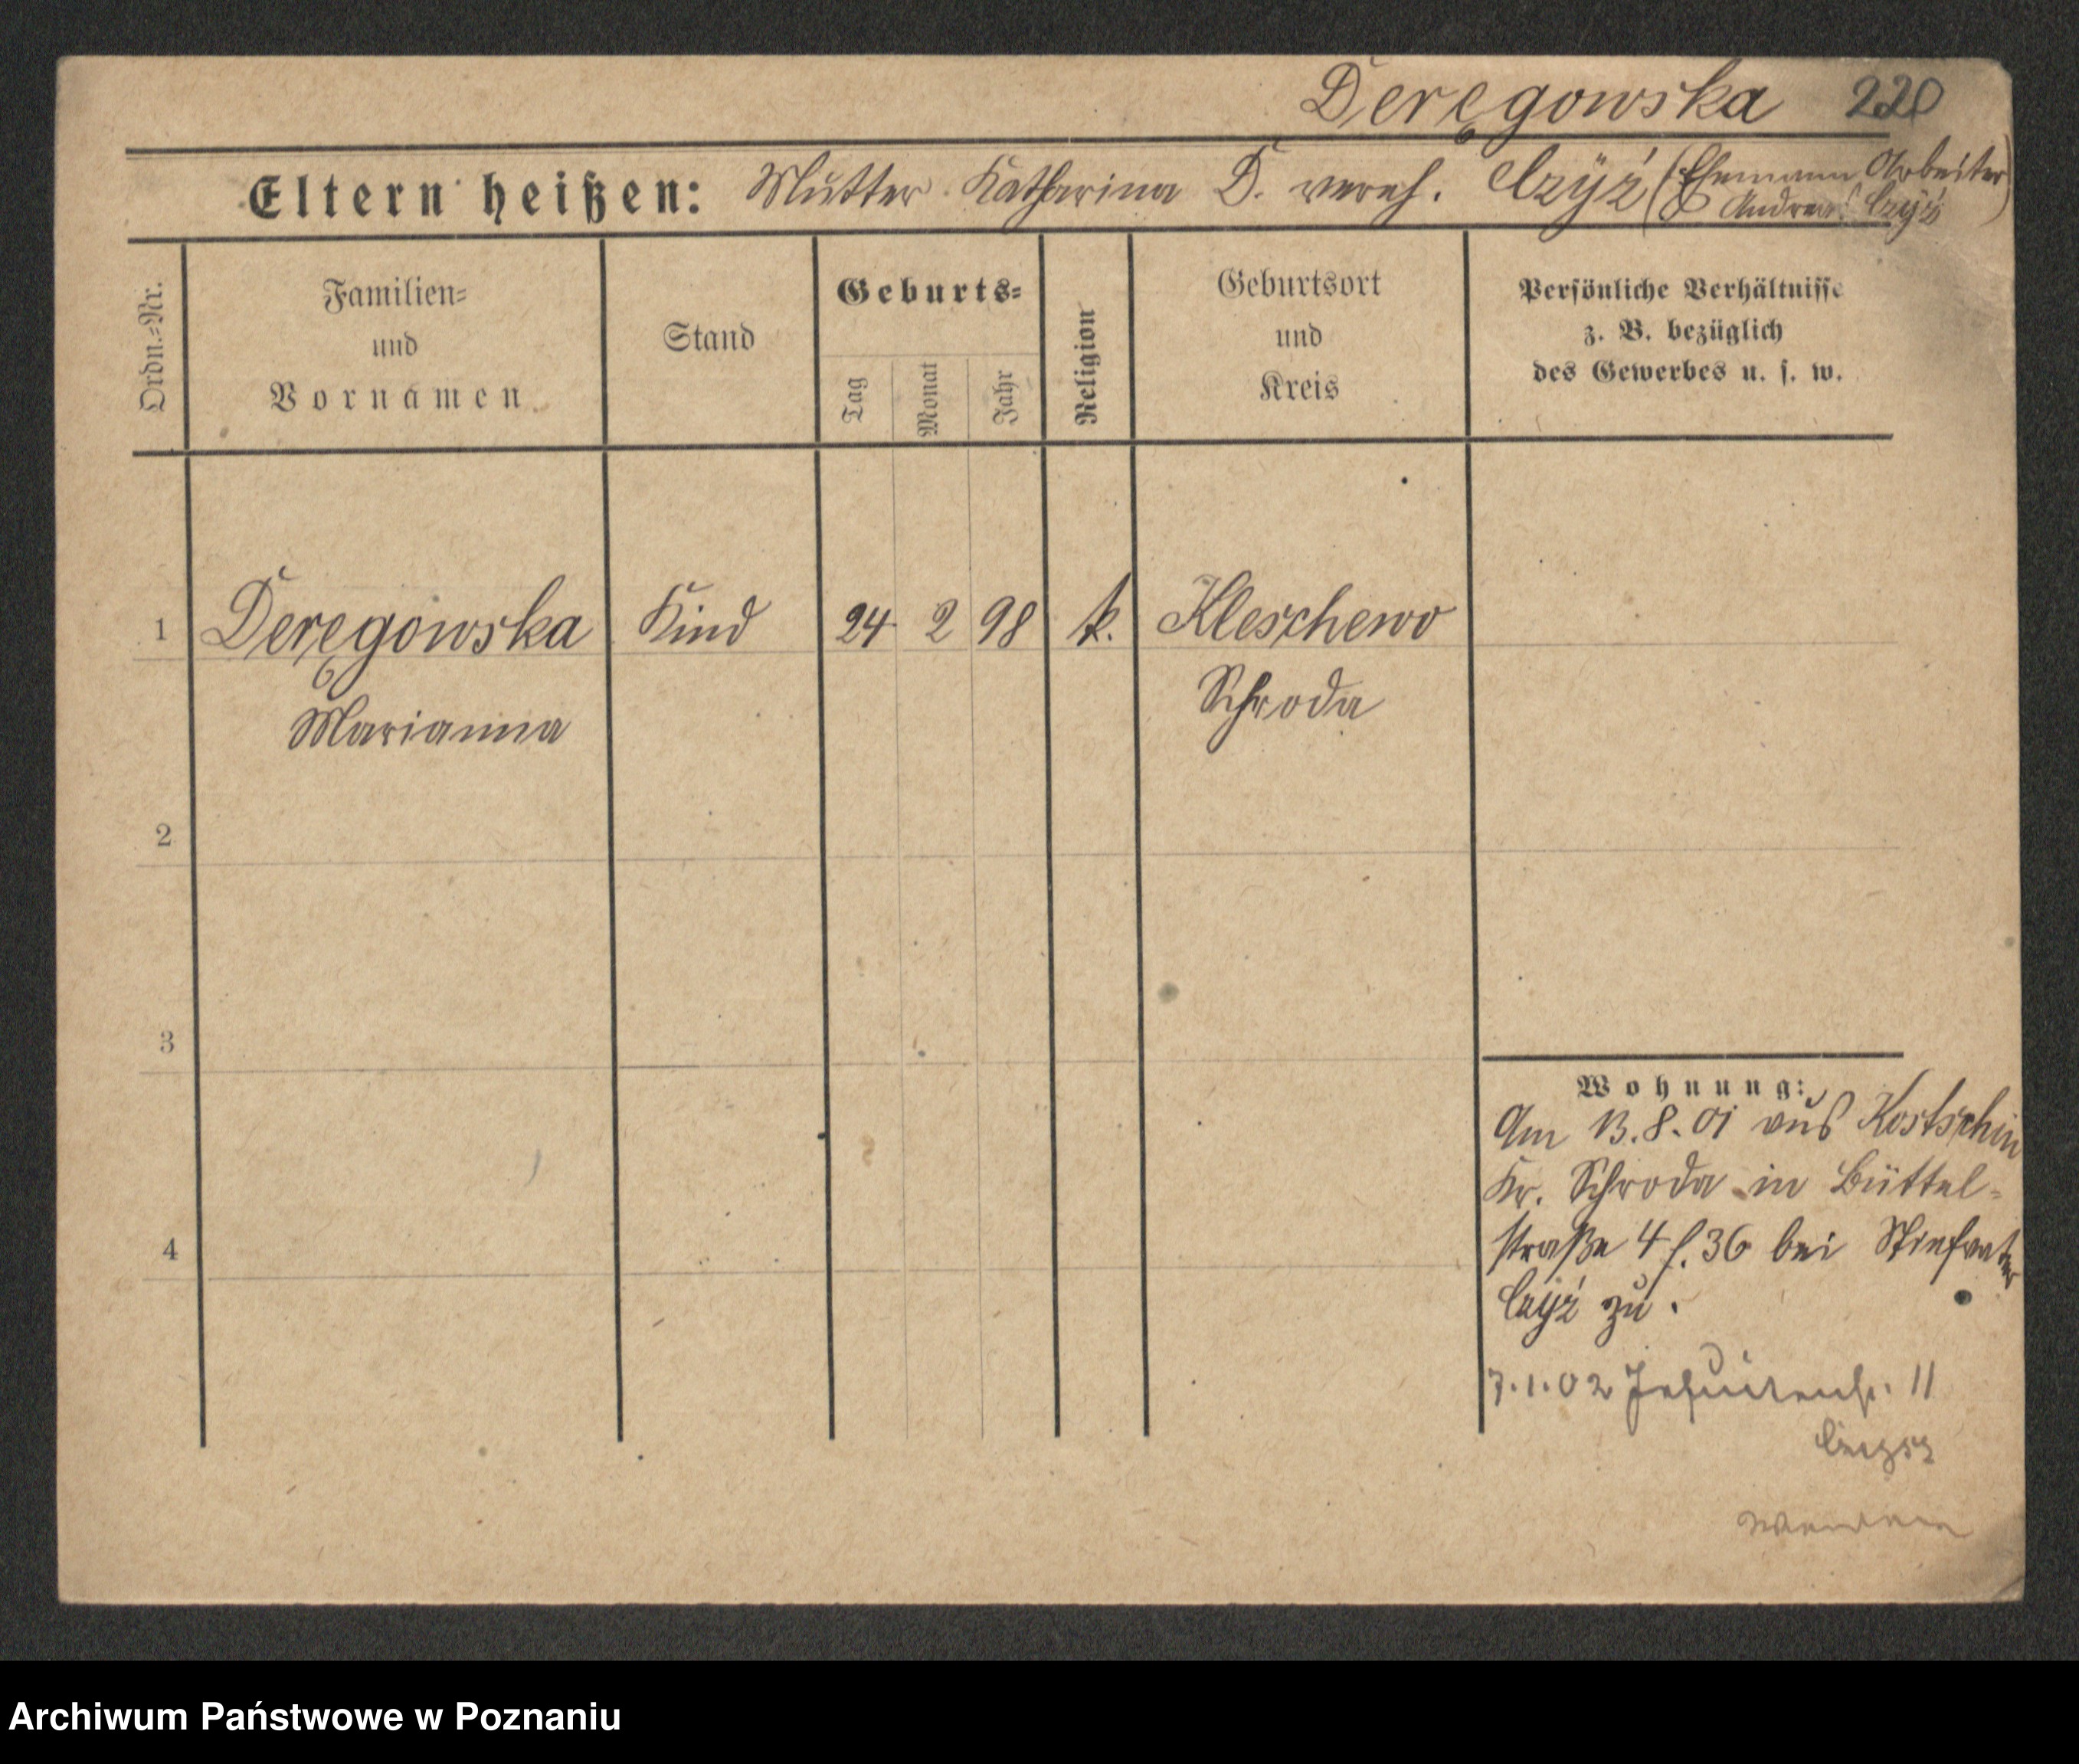 Deręgowska 220
Eltern heißen: Mutter Katharina D. vereh. Czyż (Ehemann Arbeiter
Andreas Czyż)
Ordn.=Nr.
Familien=
und
Vornamen
Stand
Geburts=
Tag
Monat
Jahr
Religion
Geburtsort
und
Kreis
Persönliche Verhältnisse
z. B. bezüglich
des Gewerbes u. s. w.
1 Deręgowska Kind 24 2 98 k. Kleschewo
Marianna Schroda
2
3
4
Wohnung:
Am 13.8.01 aus Kostschin
Kr. Schroda in Büttel=
straße 4 f. 36 bei Stiefvater
Czyż zu.
7.1.02 Jesuitenstr. 11
wenden
Archiwum Państwowe w Poznaniu